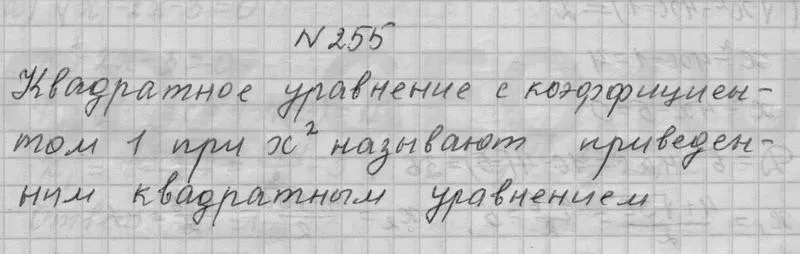 N 255
Квадратное уравнение с коэффициен-
том 1 при x² называют приведен-
ным квадратным уравнением